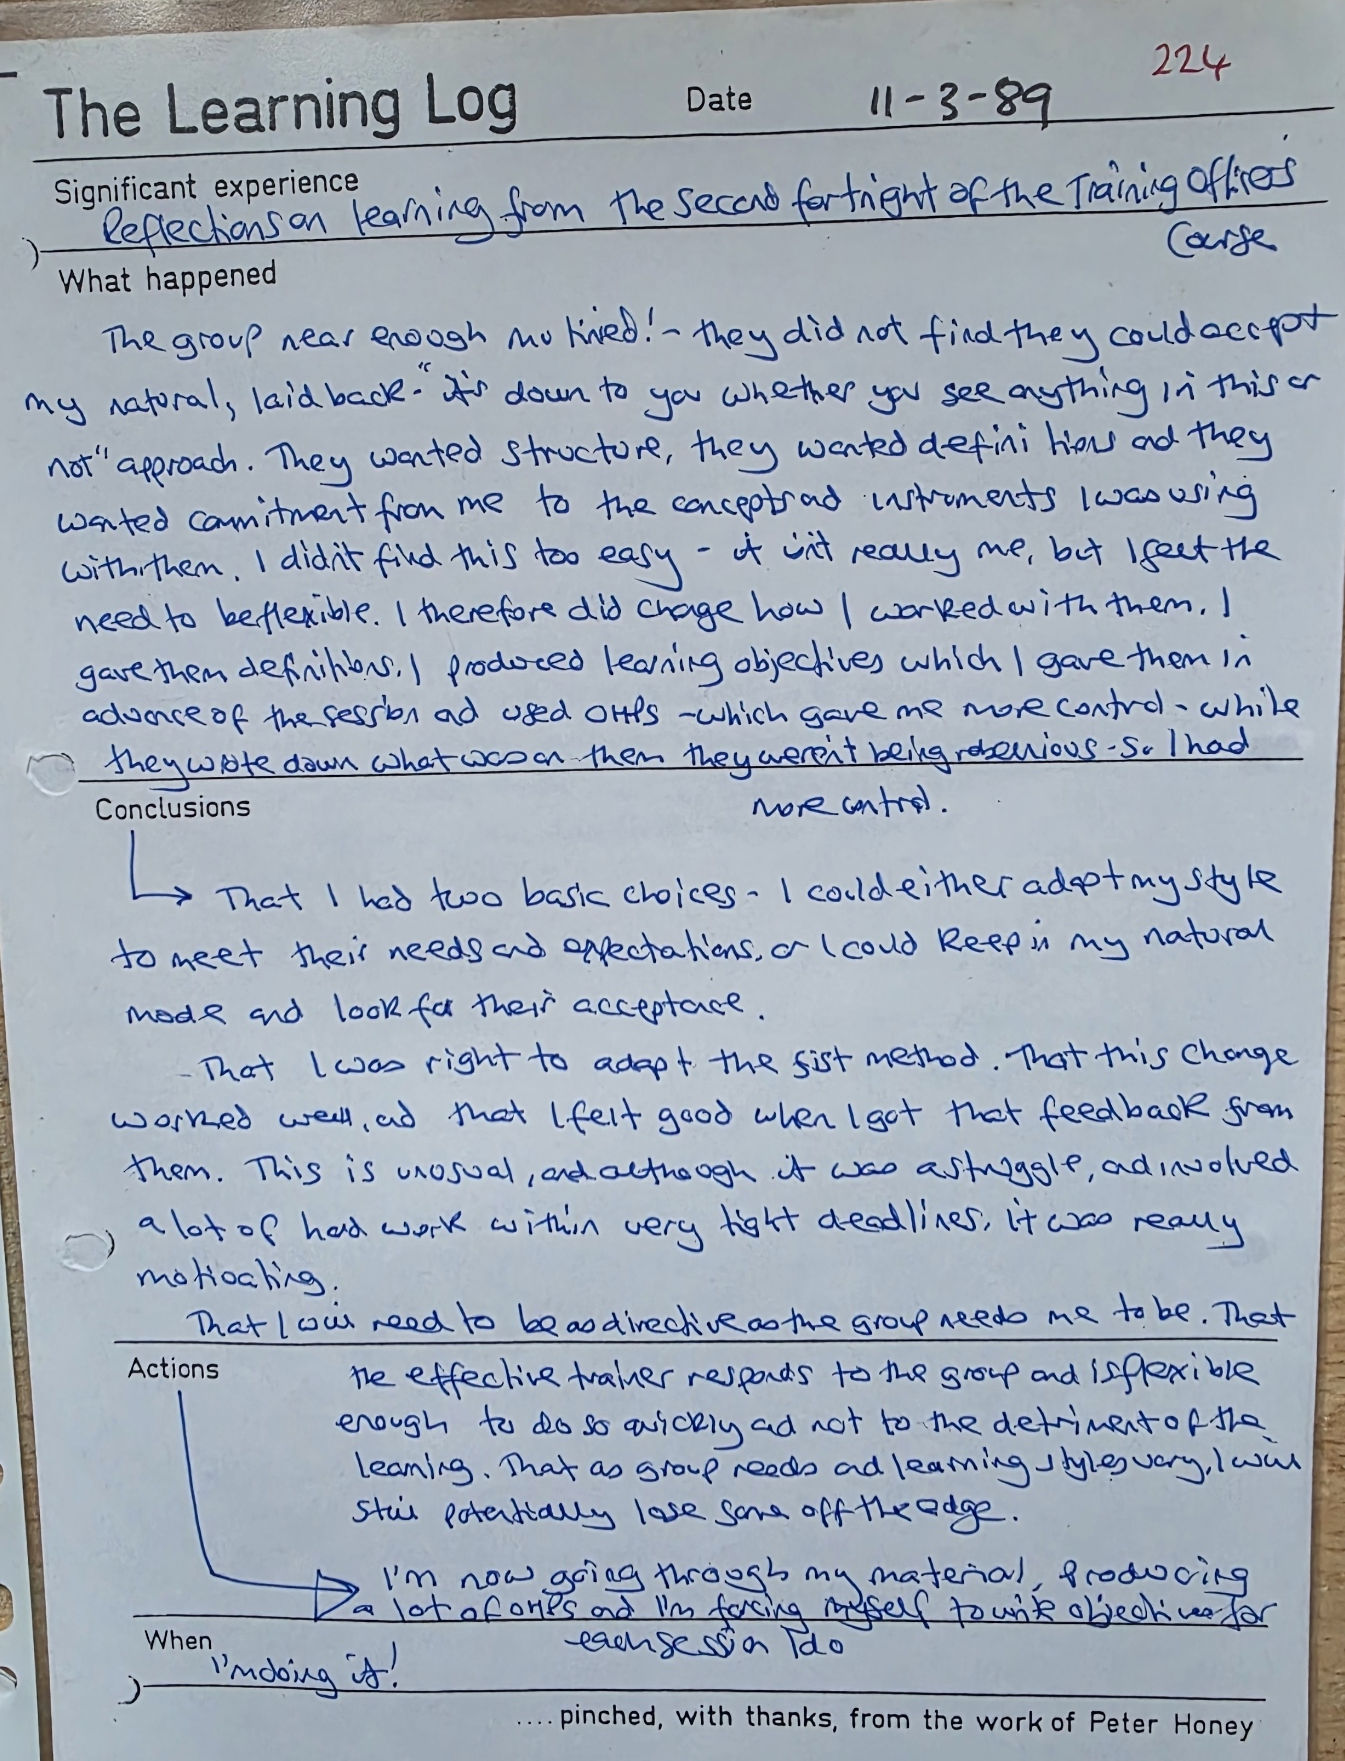 224
The Learning Log Date 11-3-89
Significant experience
Reflections on learning from the second fortnight of the Training Officers
Course
What happened
The group near enough mutinied! - they did not find they could accept
my natural, laid back - "it's down to you whether you see anything in this or
not" approach. They wanted structure, they wanted definitions and they
wanted commitment from me to the concepts and instruments I was using
with them. I didn't find this too easy - it isn't really me, but I felt the
need to be flexible. I therefore did change how I worked with them. I
gave them definitions, I produced learning objectives which I gave them in
advance of the session and used OHPs - which gave me more control - while
they wrote down what was on them they weren't being rebellious - so I had
more control.
Conclusions
That I had two basic choices - I could either adapt my style
to meet their needs and expectations, or I could keep in my natural
mode and look for their acceptance.
- That I was right to adapt the fist method. That this change
worked well, and that I felt good when I got that feedback from
them. This is unusual, and although it was a struggle, and involved
a lot of hard work within very tight deadlines, it was really
motivating.
That I will need to be as directive as the group needs me to be. That
Actions the effective trainer responds to the group and is flexible
enough to do so quickly and not to the detriment of the
learning. That as group needs and learning styles vary, I will
still potentially lose some off the edge.
I'm now going through my material, producing
a lot of OHPs and I'm forcing myself to write objectives for
each session I do
When
I'm doing it!
.... pinched, with thanks, from the work of Peter Honey